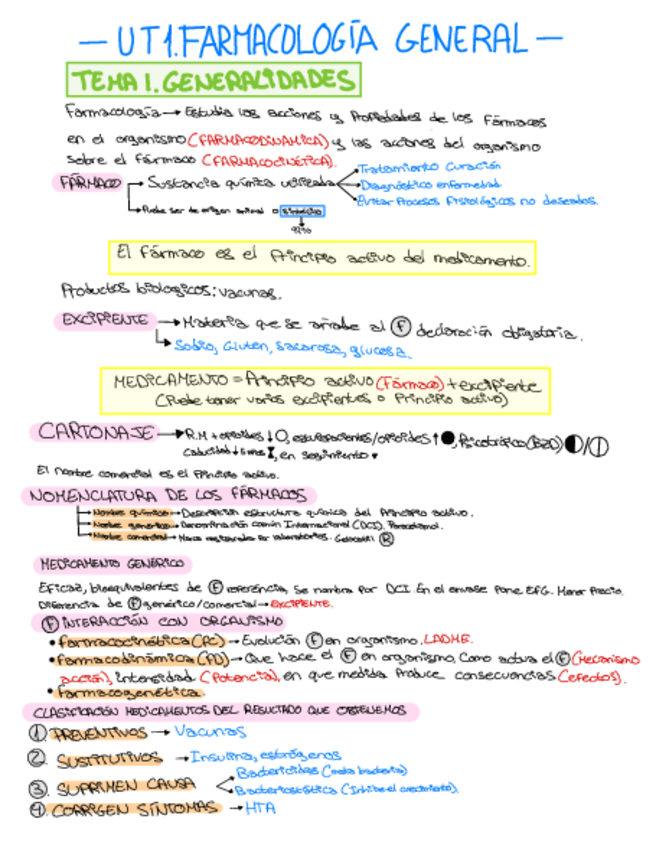 — UT1. FARMACOLOGÍA GENERAL —
TEMA 1. GENERALIDADES
Farmacología → Estudia las acciones y Propiedades de los Fármacos
en el organismo (FARMACODINAMICA) y las acciones del organismo
sobre el fármaco (FARMACOCINÉTICA).
FÁRMACO → Sustancia química utilizada
Tratamiento curación
Diagnóstico enfermedad
Evitar Procesos fisiológicos no deseados.
Puede ser de origen animal o sintético
92%
El Fármaco es el Principio activo del medicamento.
Productos biologicos: vacunas.
EXCIPIENTE → Materia que se añade al Ⓕ declaración obligatoria.
Sodio, Gluten, Sacarosa, glucosa.
MEDICAMENTO = Principio activo (Fármaco) + excipiente
(Puede tener varios excipientes o Principio activo)
CARTONAJE → R.M + opioides ↓ ○, estupefacientes/opioides ↑ ●, Psicotrópico (BZD) ◐/⦶
Caducidad ↓ 5 años ⧗, en seguimiento ▼
El nombre comercial es el Principio activo.
NOMENCLATURA DE LOS FÁRMACOS
→ Nombre químico → Descripción estructura química del Principio activo.
→ Nombre genérico → Denominación común Internacional (DCI). Paracetamol.
→ Nombre comercial → Marca registrada por laboratorios. Gelocatil Ⓡ
MEDICAMENTO GENÉRICO
Eficaz, bioequivalentes de Ⓕ referéncia, Se nombra por DCI. En el envase Pone EFG. Menor Precio.
Diferencia de Ⓕ genérico/comercial → EXCIPIENTE.
Ⓕ INTERACCIÓN CON ORGANISMO
• Farmacocinética (FC) → Evolución Ⓕ en organismo. LADME.
• Farmacodinámica (FD) → Que hace el Ⓕ en organismo, Como actua el Ⓕ (Mecanismo
acción), intensidad (Potencia), en que medida Produce consecuencias (efectos).
• Farmacogenética
CLASIFICACIÓN MEDICAMENTOS DEL RESULTADO QUE OBTENEMOS
①. PREVENTIVOS → Vacunas
②. SUSTITUTIVOS → Insulina, estrógenos
③. SUPRIMEN CAUSA
Bactericidas (mata bacteria)
Bacteriostática (Inhibe el crecimiento).
④. CORRIGEN SÍNTOMAS → HTA